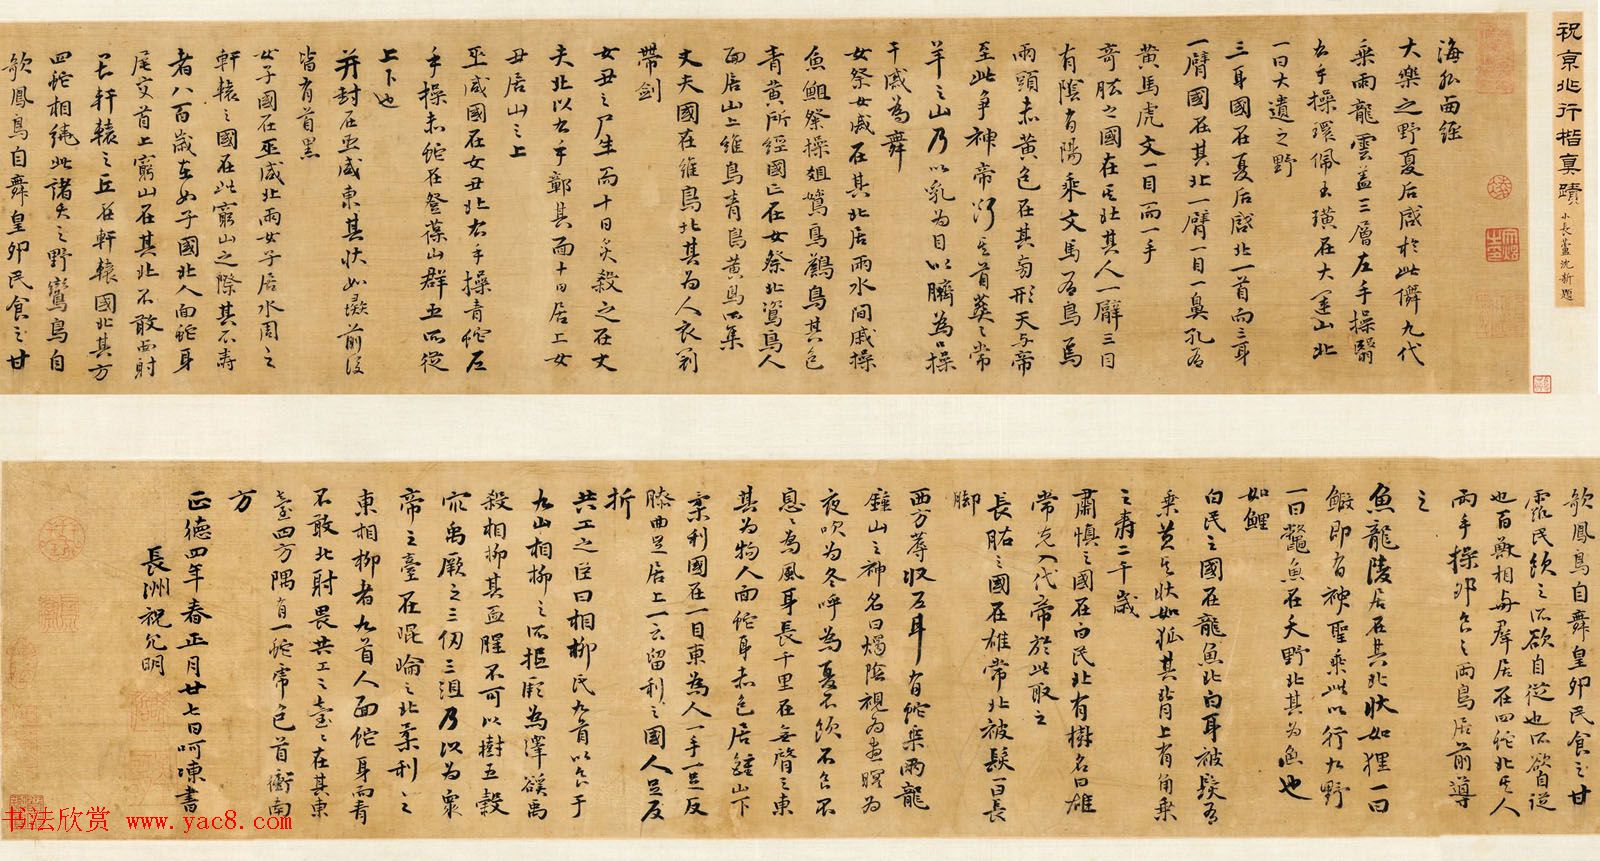 祝京兆行楷真蹟
小長蘆沈新題
海外西經
大樂之野夏后啟於此儛九代
乘兩龍雲蓋三層左手操翳
右手操環佩玉璜在大運山北
一曰大遺之野
三身國在夏后啟北一首而三身
一臂國在其北一臂一目一鼻孔有
黃馬虎文一目而一手
奇肱之國在其北其人一臂三目
有陰有陽乘文馬有鳥焉
兩頭赤黃色在其旁形天與帝
至此爭神帝斷其首葬之常
羊之山乃以乳為目以臍為口操
干戚為舞
女祭女戚在其北居兩水間戚操
魚䱇祭操俎鳥鳥其色
青黃所經國亡在女祭北鳥人
面居山上維鳥青鳥黃鳥所集
丈夫國在維鳥北其為人衣冠
帶劍
女丑之尸生而十日炙殺之在丈
夫北以右手鄣其面十日居上女
丑居山之上
巫咸國在女丑北右手操青蛇左
手操赤蛇在登葆山群巫所從
上下也
并封在巫咸東其狀如彘前後
皆有首黑
女子國在巫咸北兩女子居水周之
軒轅之國在此窮山之際其不壽
者八百歲在女子國北人面蛇身
尾交首上窮山在其北不敢西射
畏軒轅之丘在軒轅國北其方
四蛇相繞此諸夭之野鸞鳥自
歌鳳鳥自舞皇卵民食之甘
歌鳳鳥自舞皇卵民食之甘
露民飲之所欲自從也所欲自從
也百獸相與群居在四蛇北其人
兩手操卵食之兩鳥居前導
之
魚龍陵居在其北狀如狸一曰
鰕即有神聖乘此以行九野
一曰鼈魚在夭野北其為魚也
如鯉
白民之國在龍魚北白身被髮有
乘黃其狀如狐其背上有角乘
之壽二千歲
肅慎之國在白民北有樹名曰雄
常先入代帝於此取之
長股之國在雄常北被髮一曰長
脚
西方蓐收左耳有蛇乘兩龍
鍾山之神名曰燭陰視為晝瞑為
夜吹為冬呼為夏不飲不食不
息息為風身長千里在無䏿之東
其為物人面蛇身赤色居鍾山下
柔利國在一目東為人一手一足反
膝曲足居上一云留利之國人足反
折
共工之臣曰相柳氏九首以食于
九山相柳之所抵厥為澤谿禹
殺相柳其血腥不可以樹五穀
禹厥之三仞三沮乃以為眾
帝之臺在崑崙之北柔利之
東相柳者九首人面蛇身而青
不敢北射畏共工之臺臺在其東
臺四方隅有一蛇虎色首衝南
方
正德四年春正月廿七日呵凍書
長洲祝允明
书法欣赏 www.yac8.com